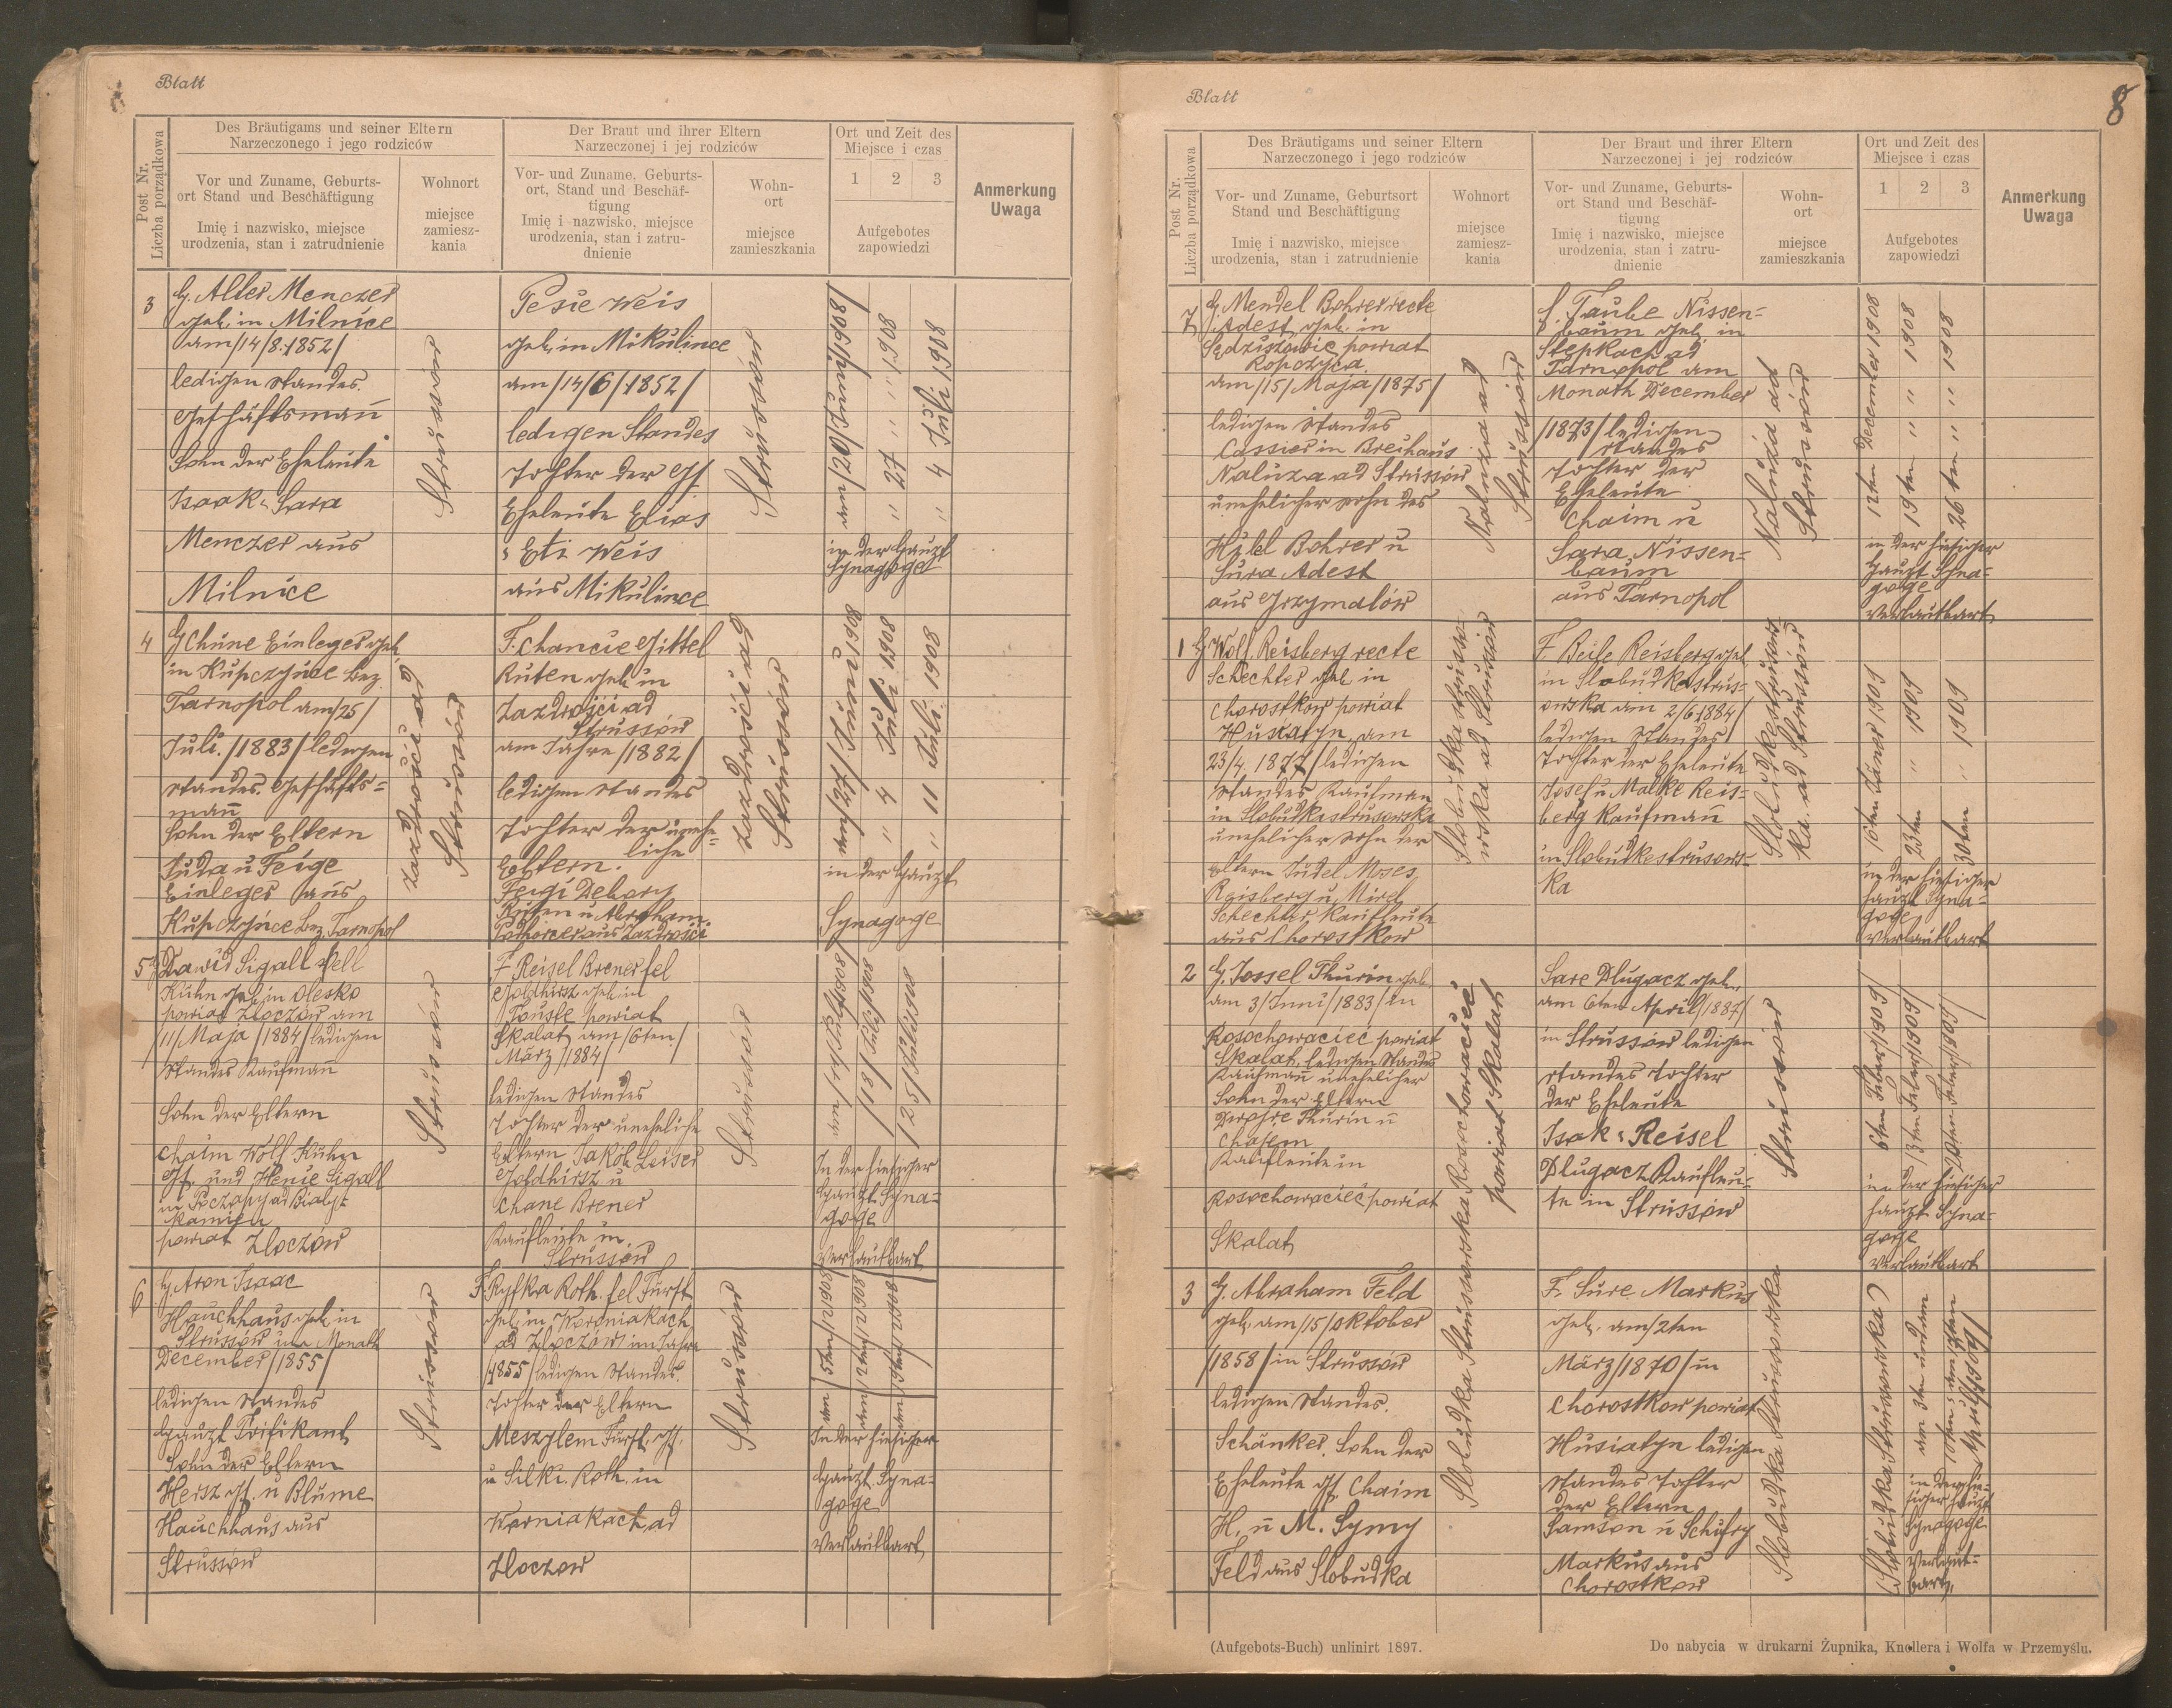 Blatt
Post Nr.
Liczba porządkowa
Des Bräutigams und seiner Eltern
Narzeczonego i jego rodziców
Vor und Zuname, Geburts-
ort Stand und Beschäftigung
Imię i nazwisko, miejsce
urodzenia, stan i zatrudnienie
Wohnort
miejsce
zamiesz-
kania
Der Braut und ihrer Eltern
Narzeczonej i jej rodziców
Vor- und Zuname, Geburts-
ort, Stand und Beschäf-
tigung
Imię i nazwisko, miejsce
urodzenia, stan i zatru-
dnienie
Wohn-
ort
miejsce
zamieszkania
Ort und Zeit des
Miejsce i czas
1 2 3
Aufgebotes
zapowiedzi
Anmerkung
Uwaga
3
G. Alter Menczer
geb. in Milnice
am /14/8. 1852/
ledigen Standes.
Geschäftsmañ
Sohn der Eheleute
Isaak u Sara
Menczer aus
Milnice
Strussów
Pesie Weis
geb. in Mikulince
am /14/6/1852/
ledigen Standes
Tochter der Gf.
Eheleute Elias
u Eti Weis
aus Mikulince
Strussów
am /20/Junni/1908/
" 27 " " 1908
" 4 Juli 1908
in der Haupt
Synagoge
4
G Chune Einleger geb.
in Kupczynce Bez
Tarnopol am /25/
Juli /1883/ ledigen
Standes. Geschäfts=
mañ
Sohn der Eltern
Juda u Feige
Einleger aus
Kupczynce Bez. Tarnopol
Zazdrości ad
Strussów
F. Chancie Gittel
Ruten geb. in
Zazdrości ad
Strussów
am Jahre /1882/
ledigen Standes
Tochter der unehe=
liche
Eltern.
Feigi Debory
Ruten u Abraham
Podhorcer aus Zazdrości
Zazdrości ad
Strussów
am /27/ Junni 1908
" 4 Juli 1908
" 11 Juli 1908
in der Haupt
Synagoge
5
G Dawid Sigall fell
Kuhn geb. in Olesko
powiat Zloczów am
/11/ Maja /1884/ ledigen
Standes Kaufmañ
Sohn der Eltern
Chaim Wolf Kuhn
Gf. und Henie Sigall
in Poczapy ad Bialy
kamien
powiat Zloczów
Strussów
F Reisel Brener fel
Goldhirsz geb. in
Touste powiat
Skalat am /6ten/
März /1884/
ledigen Standes
Tochter der uneheliche
Eltern Jakob Leiser
Goldhirsz u
Chane Brener
Kaufleute in
Strussów
Strussów
In der hiesiger
Haupt Syna=
goge
verlautbart
6
G. Aron Isaac
Hauchhaus geb. in
Strussów im Monath
December /1855/
ledigen Standes
Sohn der Eltern
Hersz Gf. u Blume
Hauchhaus aus
Strussów
Strussów
F. Ryfka Roth fel Fürst
geb. in Korniakach
ad Zloczów im Jahre
/1855/ ledigen Standes.
Tochter der Eltern
Meszylem Fürst Gf.
u Silki Roth in
Korniakach ad
Zloczow
Strussów
In der hiesiger
Haupt Syna=
goge
verlautbart
Blatt
8
Post Nr.
Liczba porządkowa
Des Bräutigams und seiner Eltern
Narzeczonego i jego rodziców
Vor- und Zuname, Geburtsort
Stand und Beschäftigung
Imię i nazwisko, miejsce
urodzenia, stan i zatrudnienie
Wohnort
miejsce
zamiesz-
kania
Der Braut und ihrer Eltern
Narzeczonej i jej rodziców
Vor- und Zuname, Geburts-
ort Stand und Beschäf-
tigung
Imię i nazwisko, miejsce
urodzenia, stan i zatru-
dnienie
Wohn-
ort
miejsce
zamieszkania
Ort und Zeit des
Miejsce i czas
1 2 3
Aufgebotes
zapowiedzi
Anmerkung
Uwaga
7
G Mendel Bohrer recte
Adest, geb. in
Sędziszowie powiat
Ropczyca
am /15/ Maja /1875/
ledigen Standes
Cassier in Breihaus
Naluza ad Strussów
unehelicher Sohn des
Hilel Bohrer u
Sura Adest
aus Grzymalów
Naluzia ad
Strussów
f. Taube Nissen=
baum geb. in
Stepkach ad
Tarnopol am
Monath December
/1873/ ledigen
Standes
Tochter der
Eheleute
Chaim u
Sara Nissen=
baum
aus Tarnopol
Naluża ad
Strussów
12ten December 1908
19ten " " 1908
26ten " " 1908
in der hiesiger
Haupt Syna=
goge
verlautbart
1
G. Wolf Reisberg recte
Schechter geb. in
Chorostkow powiat
Husiatyn, am
23/4 1877/ ledigen
Standes Kaufman
in Slobudka strusowska
unehelicher Sohn der
Eltern Judel Moses
Reisberg u. Mirel
Schechter Kaufleute
aus Chorostkow
Slobudka strusso-
wska ad Strussów
F. Beile Reisberg geb.
in Slobudka strus=
owska am 2/6 1884/
ledigen Standes
Tochter der Eheleute
Josef u Malke Reis=
berg Kaufmañ
in Slobudkestrusows=
ka
Slobudkestrusows-
ka ad Strussów
16ten Jäner 1909
23ten " 1909
30ten " 1909
in der hiesiger
haupt Syna=
goge
verlautbart
2
G. Jossel Thurin geb.
am 3/Junni/1883/ in
Rosochowacieć powiat
Skalat, ledigen Standes
Kaufmañ unehelicher
Sohn der Eltern
Thurin u
Kaufleute in
Rosochowacieć powiat
Skalat
Rosochowacieć
powiat Skalat
Sare Dlugacz geb.
am 6ten April/1887/
in Strussów ledigen
Standes Tochter
der Eheleute
Isak u Reisel
Dlugacz Kaufleu=
te in Strussów
Strussów
6ten Feber/1909/
13ten Feber/1909/
20ten Feber/1909/
in der hiesiger
haupt Syna=
goge
verlautbart
3
G. Abraham Feld
geb. am /15/ oktober
/1858/ in Strussów
ledigen Standes.
Schänker. Sohn der
Eheleute Gf. Chaim
H. u M. Symy
Feld aus Slobudka
Slobudka Strusowska
F. Sure Markus
geb. am /2ten
März /1870/ in
Chorostkow powiat
Husiatyn ledigen
Standes Tochter
der Eltern
Samson u Schifry
Markus aus
Chorostkow
Slobudka Strusowska
(Slobudka Strusowska)
am 3ten und am
10ten u. am 17ten
April/1909/
in der hie=
siger haupt
Synagoge
verlaut=
bart,
(Aufgebots-Buch) unlinirt 1897.
Do nabycia w drukarni Żupnika, Knollera i Wolfa w Przemyślu.